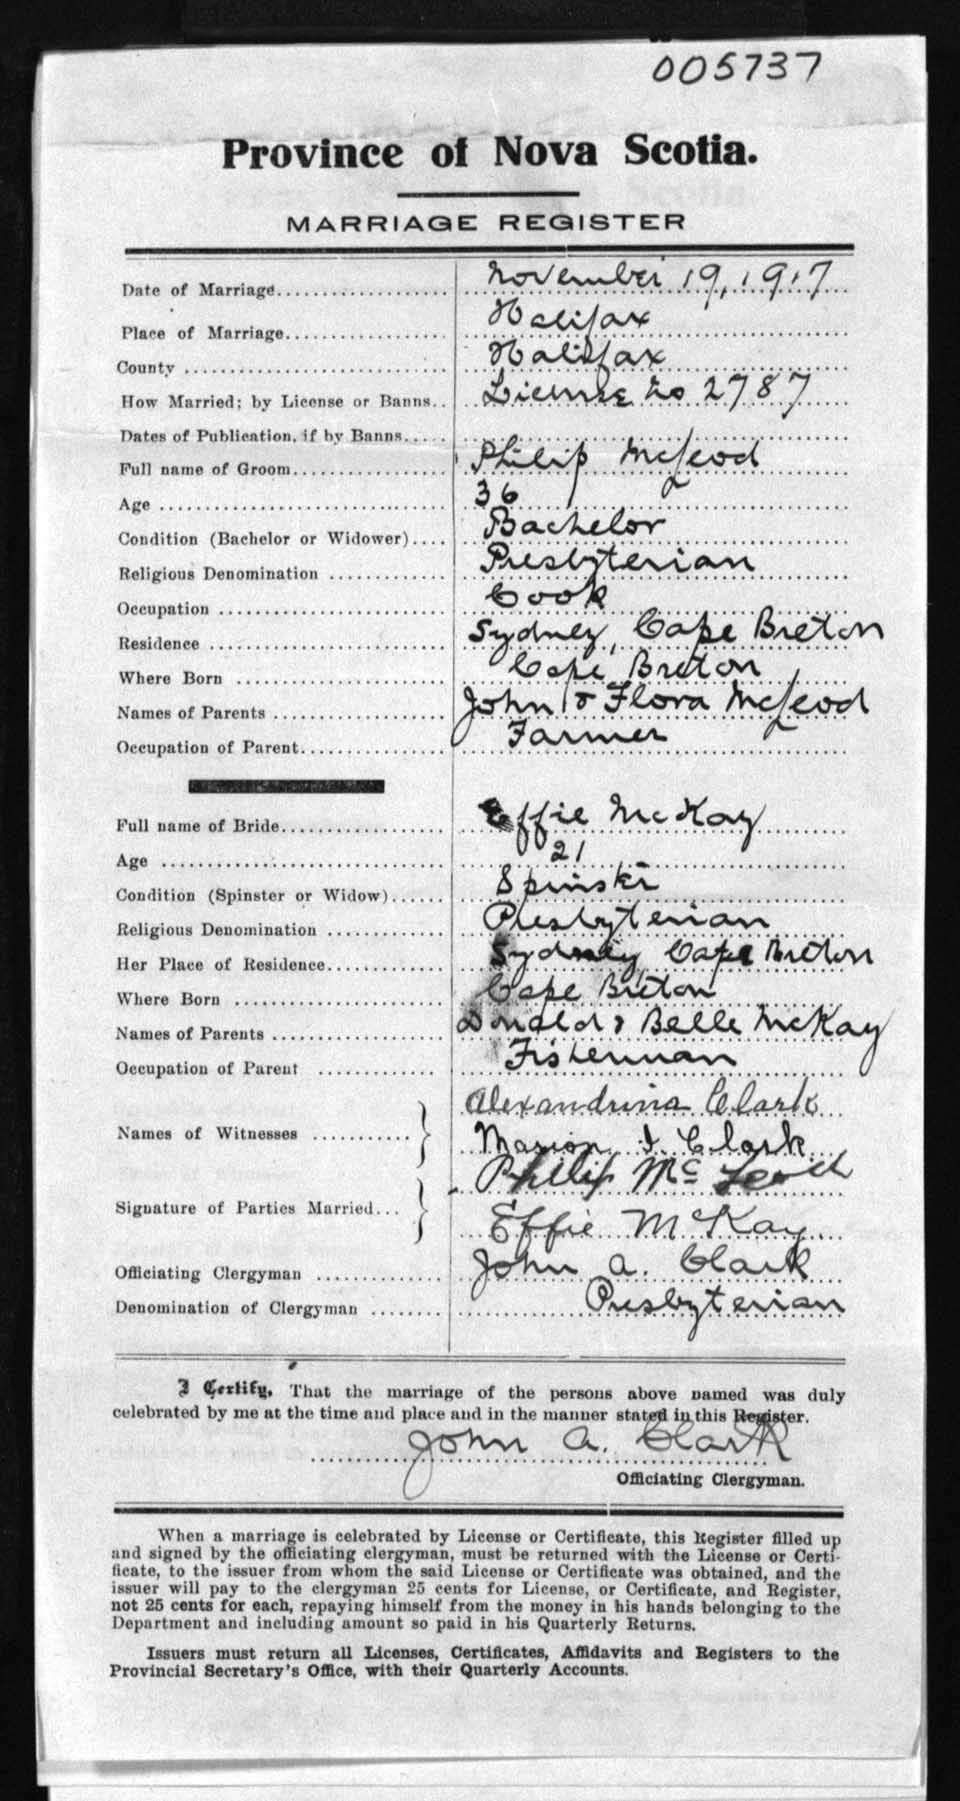 005737
Province of Nova Scotia.
MARRIAGE REGISTER
Date of Marriage.................... November 19, 1917
Place of Marriage................... Halifax
County ............................. Halifax
How Married; by License or Banns.. License No 2787
Dates of Publication, if by Banns.....
Full name of Groom.................. Philip McLeod
Age ................................ 36
Condition (Bachelor or Widower).... Bachelor
Religious Denomination ............. Presbyterian
Occupation ......................... Cook
Residence .......................... Sydney, Cape Breton
Where Born ......................... Cape Breton
Names of Parents ................... John & Flora McLeod
Occupation of Parent................ Farmer
Full name of Bride.................. Effie McKay
Age ................................ 21
Condition (Spinster or Widow)...... Spinster
Religious Denomination ............. Presbyterian
Her Place of Residence.............. Sydney Cape Breton
Where Born ......................... Cape Breton
Names of Parents ................... Donald & Belle McKay
Occupation of Parent ............... Fisherman
Alexandrina Clark
Names of Witnesses ...........
Marion I Clark
Phillip McLeod
Signature of Parties Married...
Effie McKay
Officiating Clergyman .............. John A. Clark
Denomination of Clergyman ........ Presbyterian
I Certify, That the marriage of the persons above named was duly
celebrated by me at the time and place and in the manner stated in this Register.
John A. Clark
Officiating Clergyman.
When a marriage is celebrated by License or Certificate, this Register filled up
and signed by the officiating clergyman, must be returned with the License or Certi-
ficate, to the issuer from whom the said License or Certificate was obtained, and the
issuer will pay to the clergyman 25 cents for License, or Certificate, and Register,
not 25 cents for each, repaying himself from the money in his hands belonging to the
Department and including amount so paid in his Quarterly Returns.
Issuers must return all Licenses, Certificates, Affidavits and Registers to the
Provincial Secretary's Office, with their Quarterly Accounts.